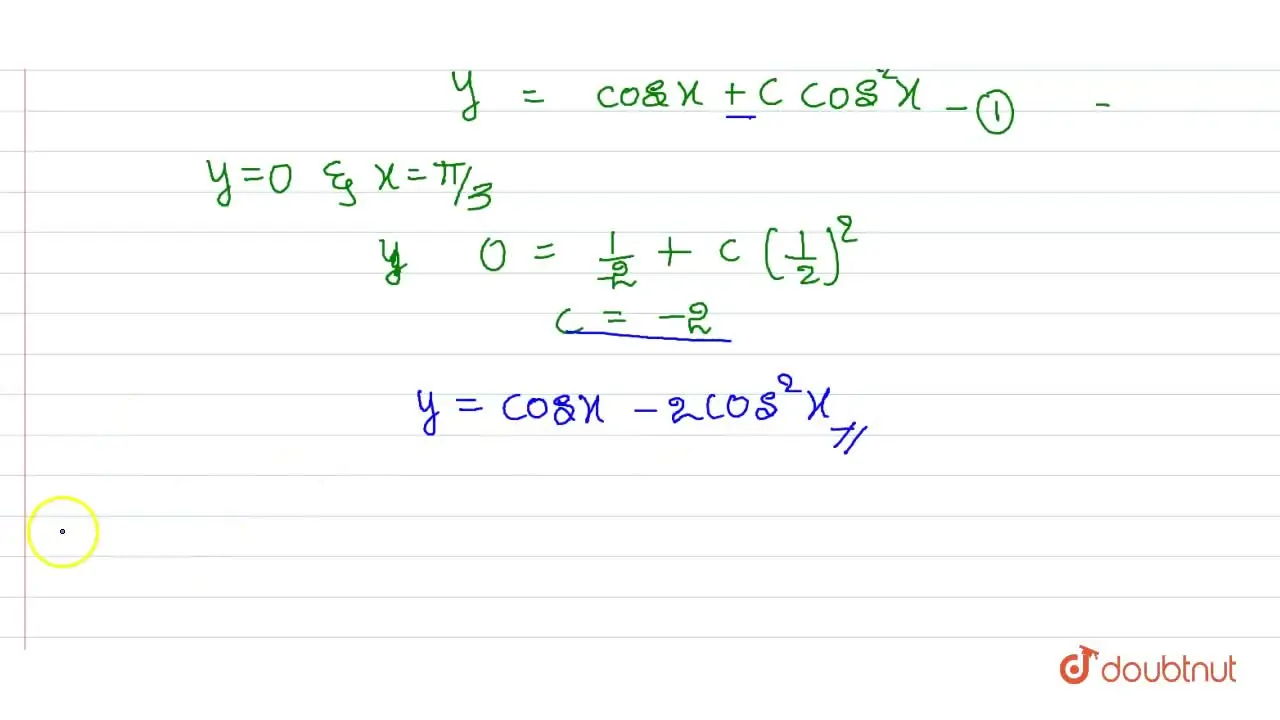 y = cosx + c cos²x - ①
y=0 & x=π/3
y 0 = 1/2 + c (1/2)²
c = -2
y = cosx - 2cos²x //
doubtnut